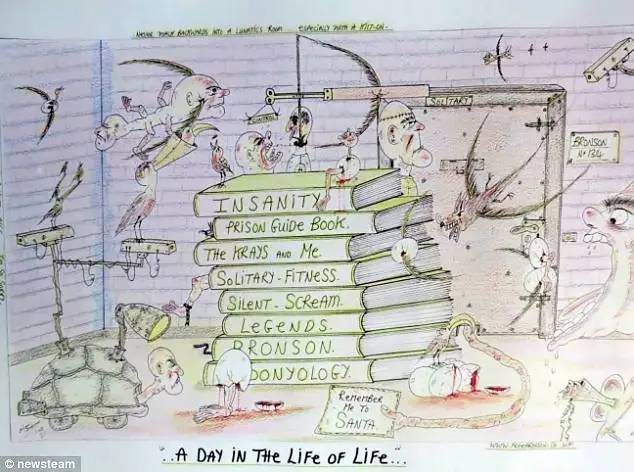 NEVER WALK BACKWARDS INTO A LUNATICS ROOM ESPECIALLY WITH A
SOLITARY
CONTROL
BRONSON
No 1314
INSANITY
PRISON GUIDE BOOK.
THE KRAYS AND ME.
SOLITARY - FITNESS.
SILENT - SCREAM.
LEGENDS.
BRONSON.
OONYOLOGY.
REMEMBER
ME TO
SANTA
"..A DAY IN THE LIFE OF LIFE"...
© newsteam